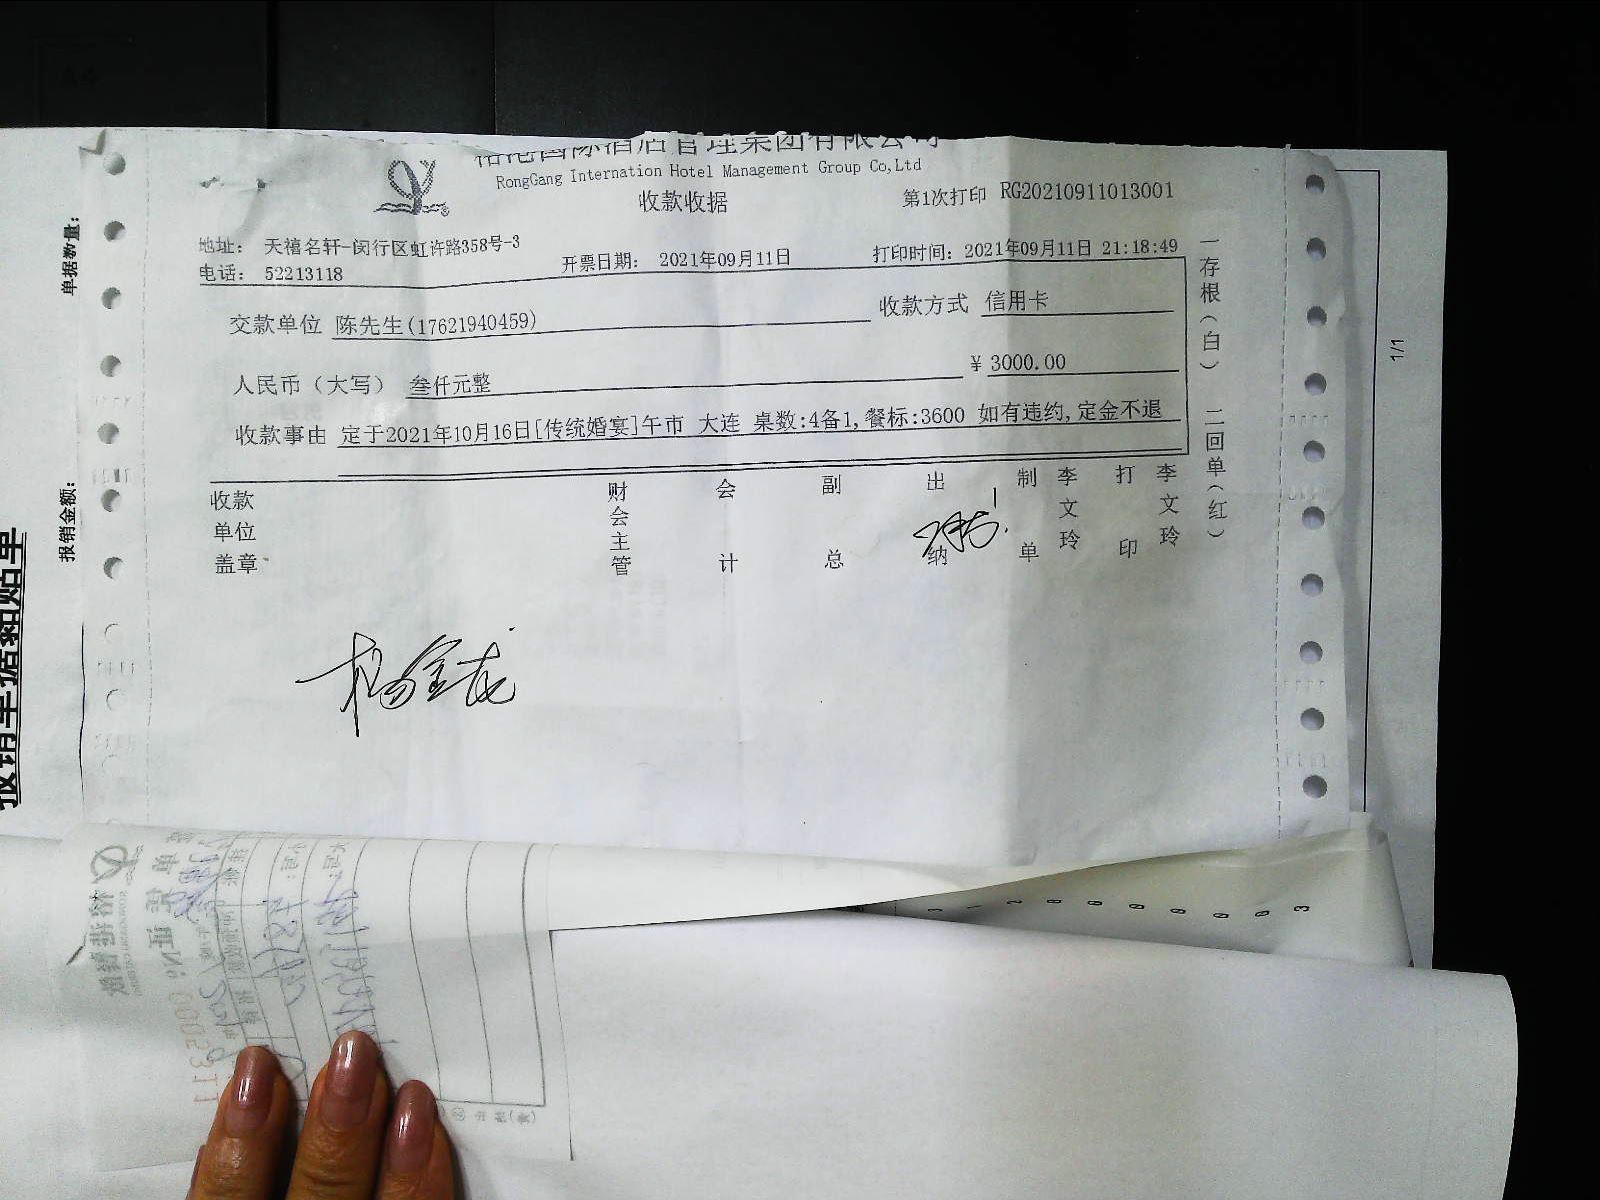 RongGang Internation Hotel Management Group Co,Ltd
收款收据
第1次打印 RG20210911013001
地址: 天禧名轩-闵行区虹许路358号-3
电话: 52213118
开票日期: 2021年09月11日
打印时间: 2021年09月11日 21:18:49
交款单位 陈先生(17621940459)
收款方式 信用卡
人民币（大写） 叁仟元整
¥ 3000.00
收款事由 定于2021年10月16日[传统婚宴]午市 大连 桌数:4备1,餐标:3600 如有违约,定金不退
收款单位盖章
财会主管
会计
副总
出纳
制单 李文玲
打印 李文玲
一存根(白) 二回单(红)
杨金龙
单据数量:
报销金额:
报销单据粘贴单
1/1
0002311